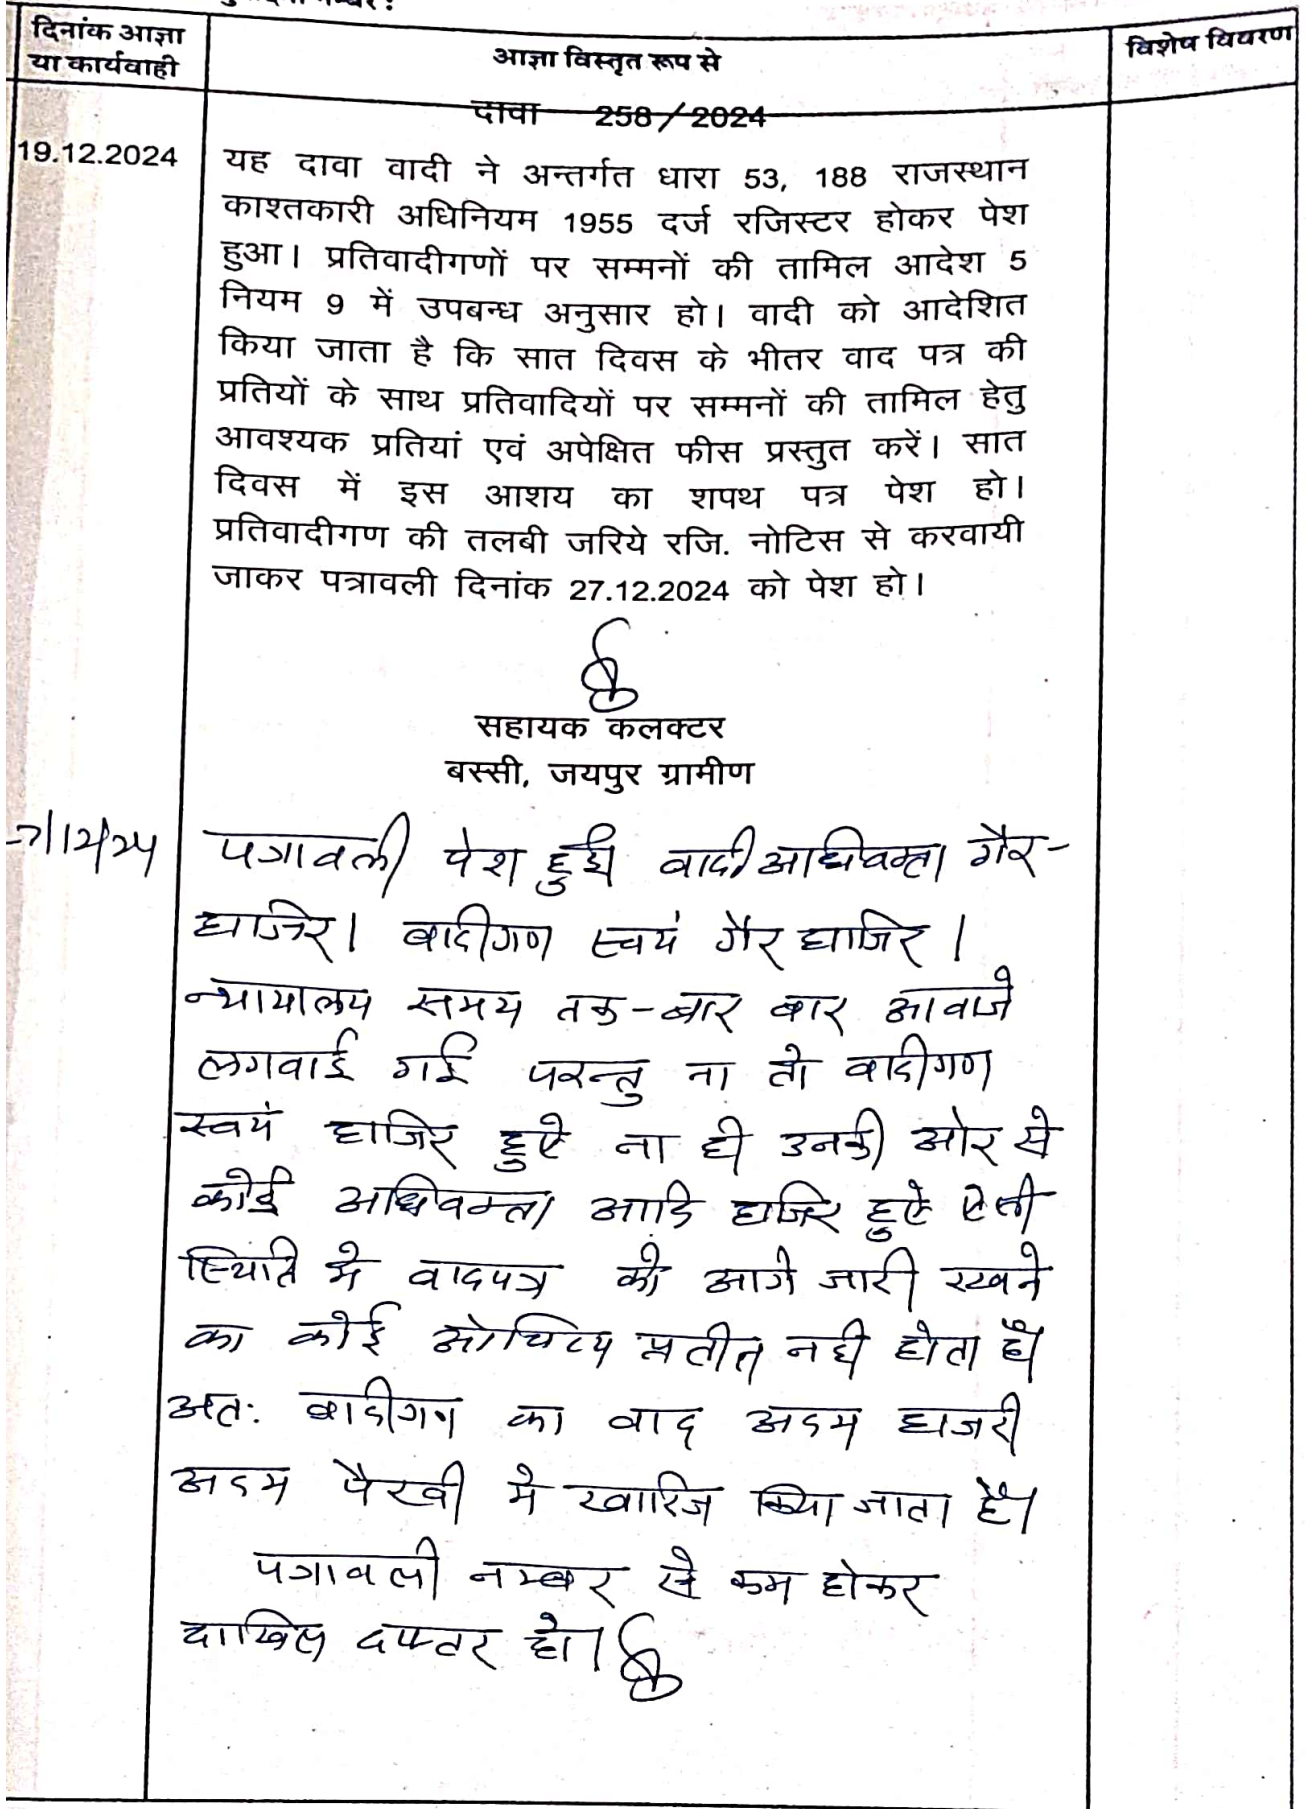 दिनांक आज्ञा
या कार्यवाही
आज्ञा विस्तृत रूप से
विशेष विवरण
दावा 258/2024
19.12.2024
यह दावा वादी ने अन्तर्गत धारा 53, 188 राजस्थान
काश्तकारी अधिनियम 1955 दर्ज रजिस्टर होकर पेश
हुआ। प्रतिवादीगणों पर सम्मनों की तामिल आदेश 5
नियम 9 में उपबन्ध अनुसार हो। वादी को आदेशित
किया जाता है कि सात दिवस के भीतर वाद पत्र की
प्रतियों के साथ प्रतिवादियों पर सम्मनों की तामिल हेतु
आवश्यक प्रतियां एवं अपेक्षित फीस प्रस्तुत करें। सात
दिवस में इस आशय का शपथ पत्र पेश हो।
प्रतिवादीगण की तलबी जरिये रजि. नोटिस से करवायी
जाकर पत्रावली दिनांक 27.12.2024 को पेश हो।
सहायक कलक्टर
बस्सी, जयपुर ग्रामीण
7/12/24
पत्रावली पेश हुई वादी अधिवक्ता गैर-
हाजिर। वादीगण स्वयं गैर हाजिर।
न्यायालय समय तक-बार बार आवाजे
लगवाई गई परन्तु ना तो वादीगण
स्वयं हाजिर हुऐ ना ही उनकी ओर से
कोई अधिवक्ता आदि हाजिर हुऐ ऐसी
स्थिति मे वादपत्र को आगे जारी रखने
का कोई ओचित्य प्रतीत नही होता है।
अतः वादीगण का वाद अदम हाजरी
अदम पैरवी मे खारिज किया जाता है।
पत्रावली नम्बर से कम होकर
दाखिल दफ्तर हो।